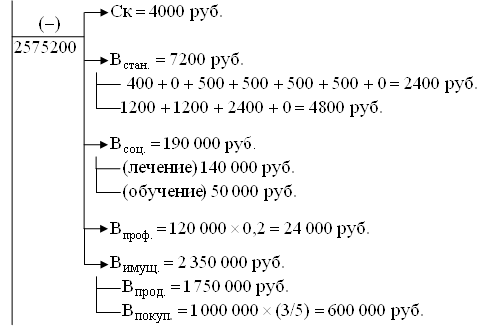 Ск = 4000 руб.
(−)
2575200
Встан. = 7200 руб.
400 + 0 + 500 + 500 + 500 + 500 + 0 = 2400 руб.
1200 + 1200 + 2400 + 0 = 4800 руб.
Всоц. = 190 000 руб.
(лечение) 140 000 руб.
(обучение) 50 000 руб.
Впроф. = 120 000 × 0,2 = 24 000 руб.
Вимущ. = 2 350 000 руб.
Впрод. = 1 750 000 руб.
Впокуп. = 1 000 000 × (3/5) = 600 000 руб.